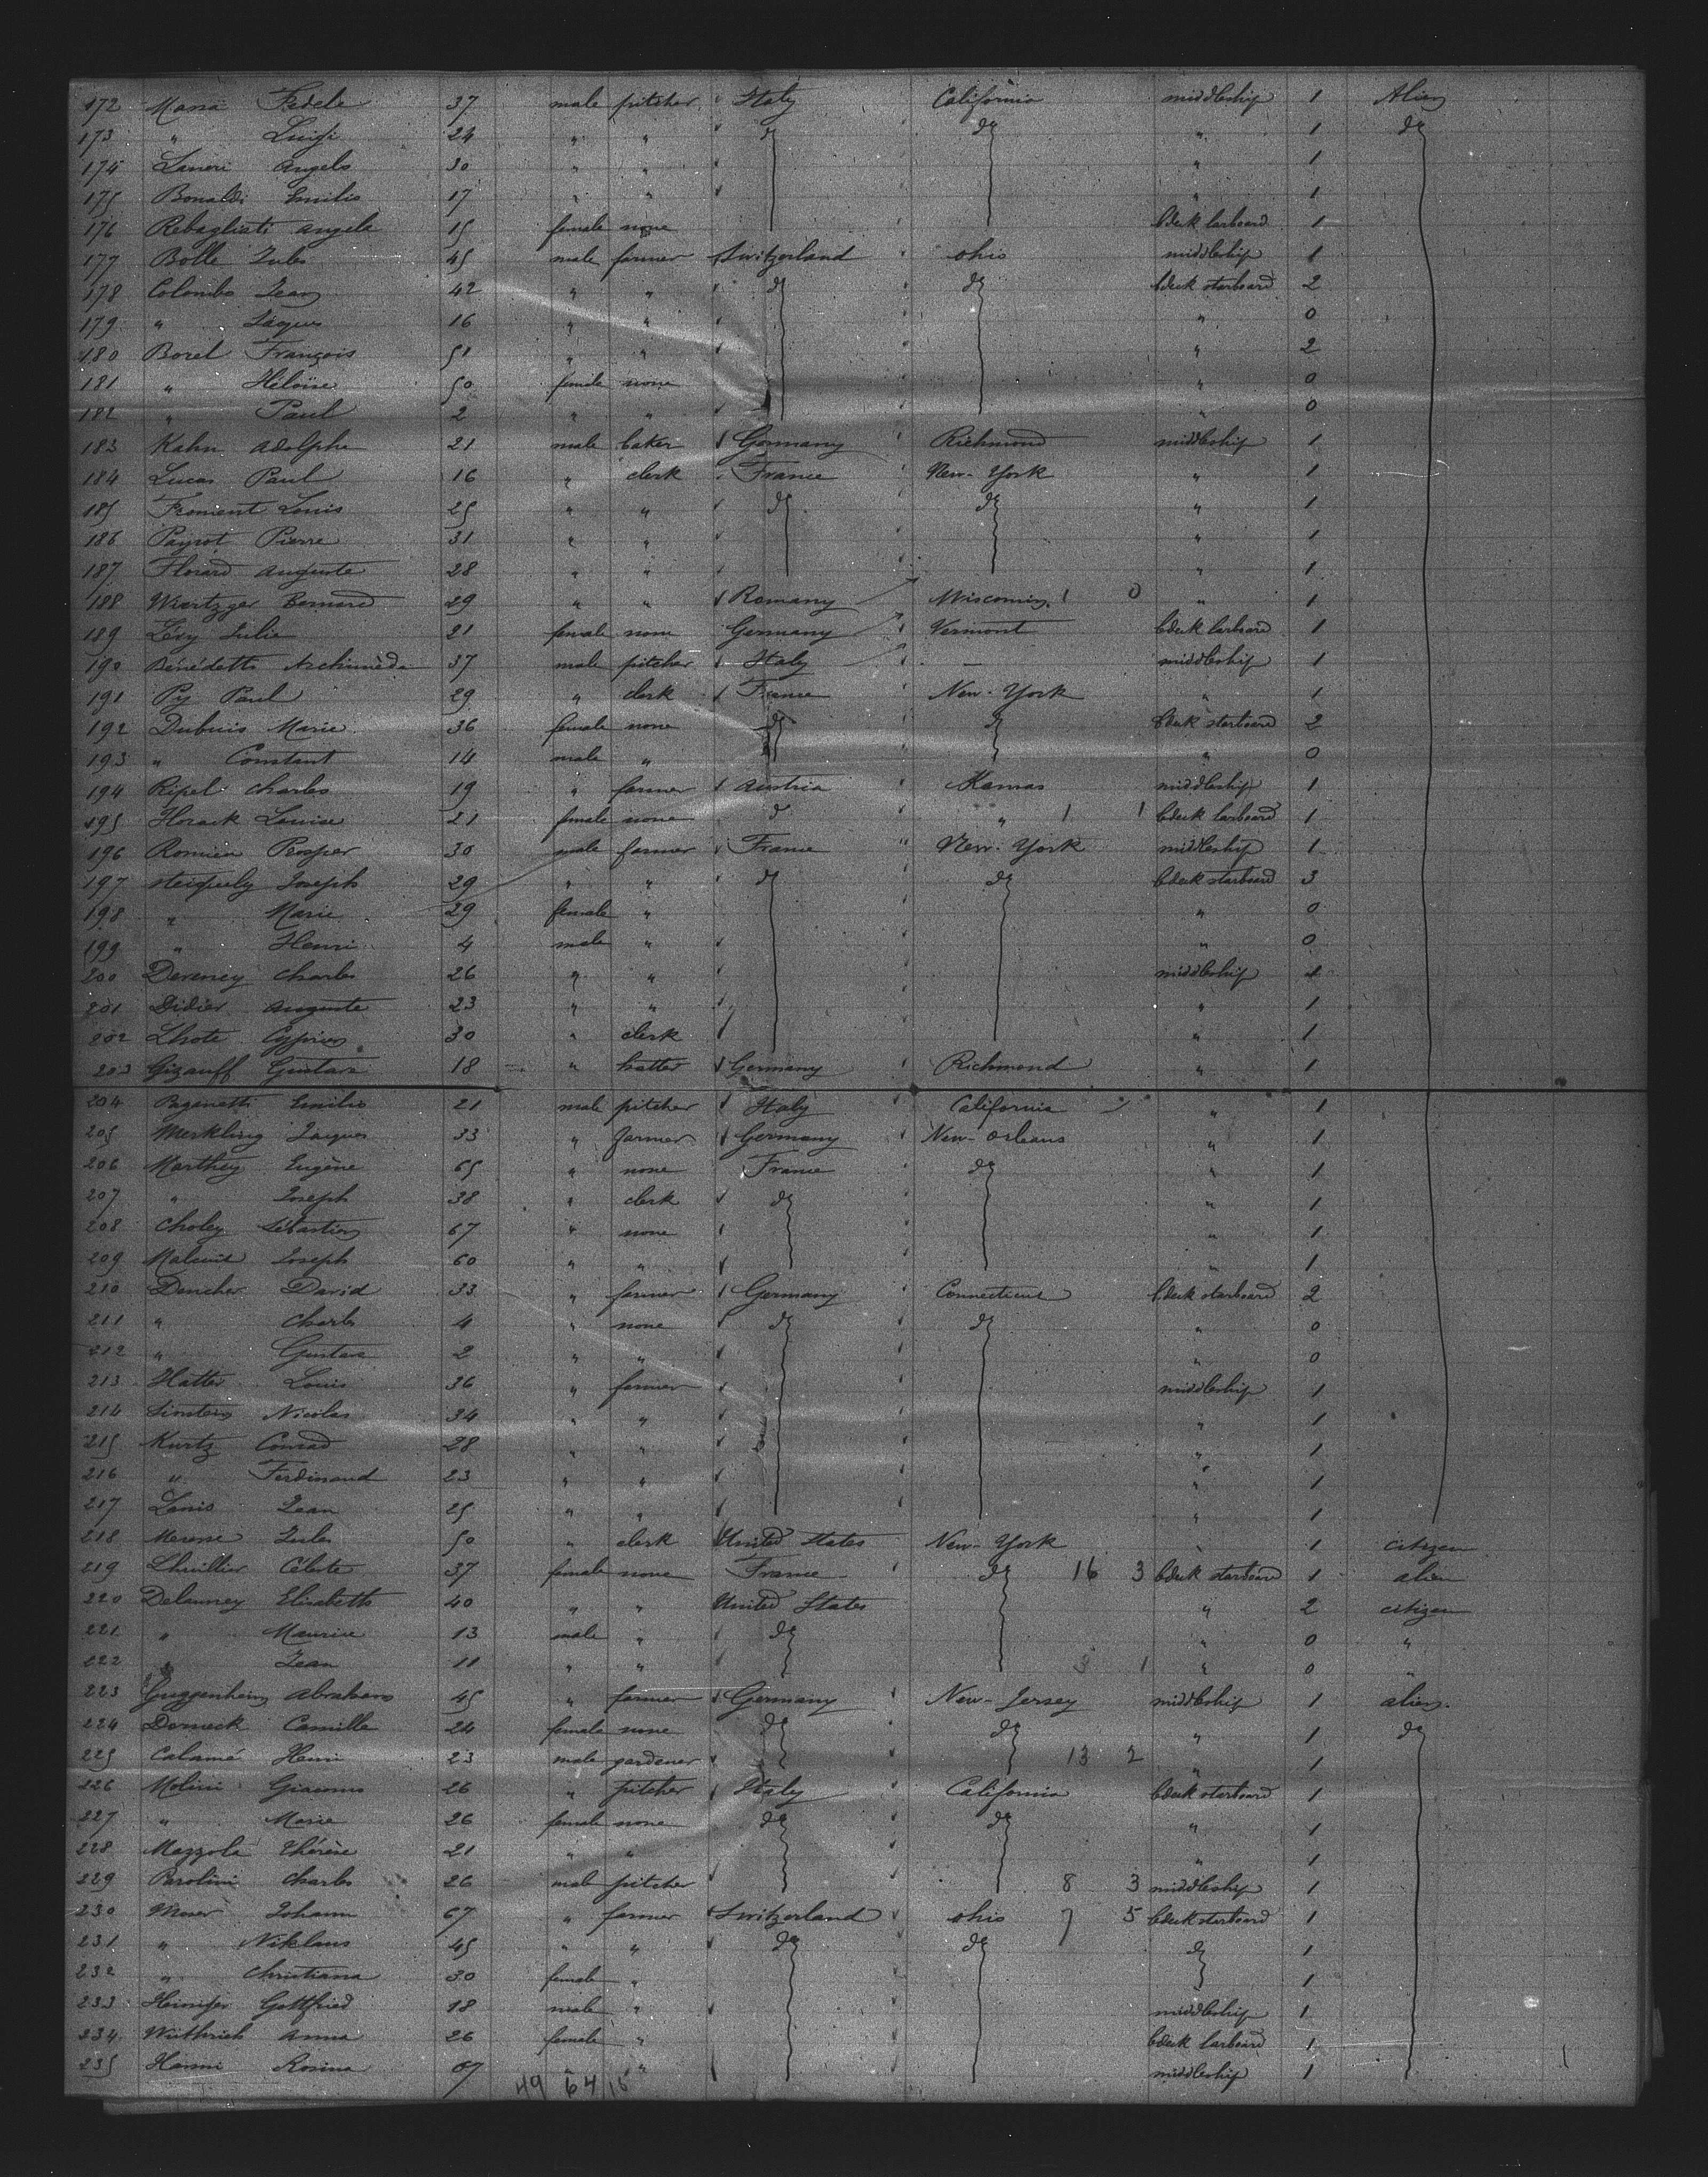 172 Maria Fedele 37 male pitcher Italy California middleship 1 Alien
173 " Luigi 24 " " do do " 1 do
174 Laneri Angelo 30 " " " 1
175 Bonaldi Emilio 17 " " " 1
176 Rebagliati Angela 15 female none bdeck larboard 1
177 Bolle Jules 45 male farmer Switzerland ohio middleship 1
178 Colombo Jean 42 " " do do bdeck starboard 2
179 " Jaques 16 " " " 0
180 Borel François 51 " " " 2
181 " Héloïse 50 female none " 0
182 " Paul 2 " " " 0
183 Kahn Adolphe 21 male baker Germany Richmond middleship 1
184 Lucas Paul 16 " clerk France New-York " 1
185 Froment Louis 25 " " do do " 1
186 Payrot Pierre 31 " " " 1
187 Florard Auguste 28 " " " 1
188 Wiertzger Bernard 29 " " Romany Wisconsin 1 0 " 1
189 Lévy Julie 21 female none Germany Vermont bdeck larboard 1
190 Bénédetti Archimède 37 male pitcher Italy — middleship 1
191 Py Paul 29 " clerk France New-York " 1
192 Dubuis Marie 36 female none do do bdeck starboard 2
193 " Constant 14 male " " 0
194 Ripel Charles 19 " farmer Austria Kansas middleship 1
195 Horack Louise 21 female none do " 1 1 bdeck larboard 1
196 Romieu Prosper 30 male farmer France New-York middleship 1
197 Joseph 29 " " do do bdeck starboard 3
198 " Marie 29 female " " 0
199 " Henri 4 male " " 0
200 Charles 26 " " middleship 1
201 Didier Auguste 23 " " " 1
202 Lhote Cyprien 30 " clerk " 1
203 Gizauff Gustave 18 " hatter Germany Richmond " 1
204 Paganetti Emilio 21 male pitcher Italy California " 1
205 Merkling Jaques 33 " farmer Germany New-Orleans " 1
206 Marthey Eugène 65 " none France do " 1
207 " Joseph 38 " clerk do " 1
208 Choley Sébastien 67 " none " 1
209 Joseph 60 " " " 1
210 Dencher David 33 " farmer Germany Connecticut bdeck starboard 2
211 " Charles 4 " none do do " 0
212 " Gustave 2 " " " 0
213 Hatter Louis 36 " farmer middleship 1
214 Nicolas 34 " " " 1
215 Kurtz Conrad 28 " " " 1
216 " Ferdinand 23 " " " 1
217 Jean 25 " " " 1
218 Jules 50 " clerk United States New-York " 1 citizen
219 Lhuillier Céleste 37 female none France do 16 3 bdeck starboard 1 alien
220 Delanney Elisabeth 40 " " United States " 2 citizen
221 " Maurice 13 male " do " 0 "
222 " Jean 11 " " 3 1 " 0 "
223 Guggenheim Abraham 45 " farmer Germany New-Jersey middleship 1 alien
224 Camille 24 female none do do " 1 do
225 Calamé Henri 23 male gardener 13 2 " 1
226 Molini Giacomo 26 " pitcher Italy California bdeck starboard 1
227 " Marie 26 female none do do " 1
228 Mazzola Thérèse 21 " " " 1
229 Parolini Charles 26 male pitcher 8 3 middleship 1
230 Moser Johann 67 " farmer Switzerland ohio 7 5 bdeck starboard 1
231 " Niklaus 45 " " do do do 1
232 " Christiana 30 female " 1
233 Gottfried 18 male " middleship 1
234 Wüthrich Anna 26 female " bdeck larboard 1
235 Hanni Rosina 67 " " middleship 1
49 64 15